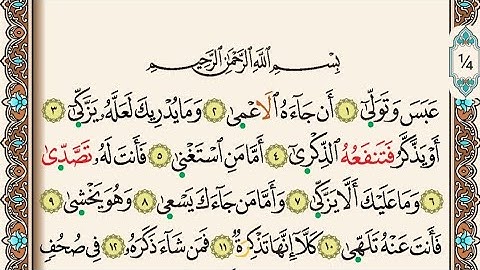 بِسْمِ اللَّهِ الرَّحْمَٰنِ الرَّحِيمِ
1/4
عَبَسَ وَتَوَلَّىٰ ١ أَن جَاءَهُ الْأَعْمَىٰ ٢ وَمَا يُدْرِيكَ لَعَلَّهُ يَزَّكَّىٰ ٣
أَوْ يَذَّكَّرُ فَتَنفَعُهُ الذِّكْرَىٰ ٤ أَمَّا مَنِ اسْتَغْنَىٰ ٥ فَأَنتَ لَهُ تَصَّدَّىٰ
٦ وَمَا عَلَيْكَ أَلَّا يَزَّكَّىٰ ٧ وَأَمَّا مَن جَاءَكَ يَسْعَىٰ ٨ وَهُوَ يَخْشَىٰ ٩
فَأَنتَ عَنْهُ تَلَهَّىٰ ١٠ كَلَّا إِنَّهَا تَذْكِرَةٌ ١١ فَمَن شَاءَ ذَكَرَهُ ١٢ فِي صُحُفٍ